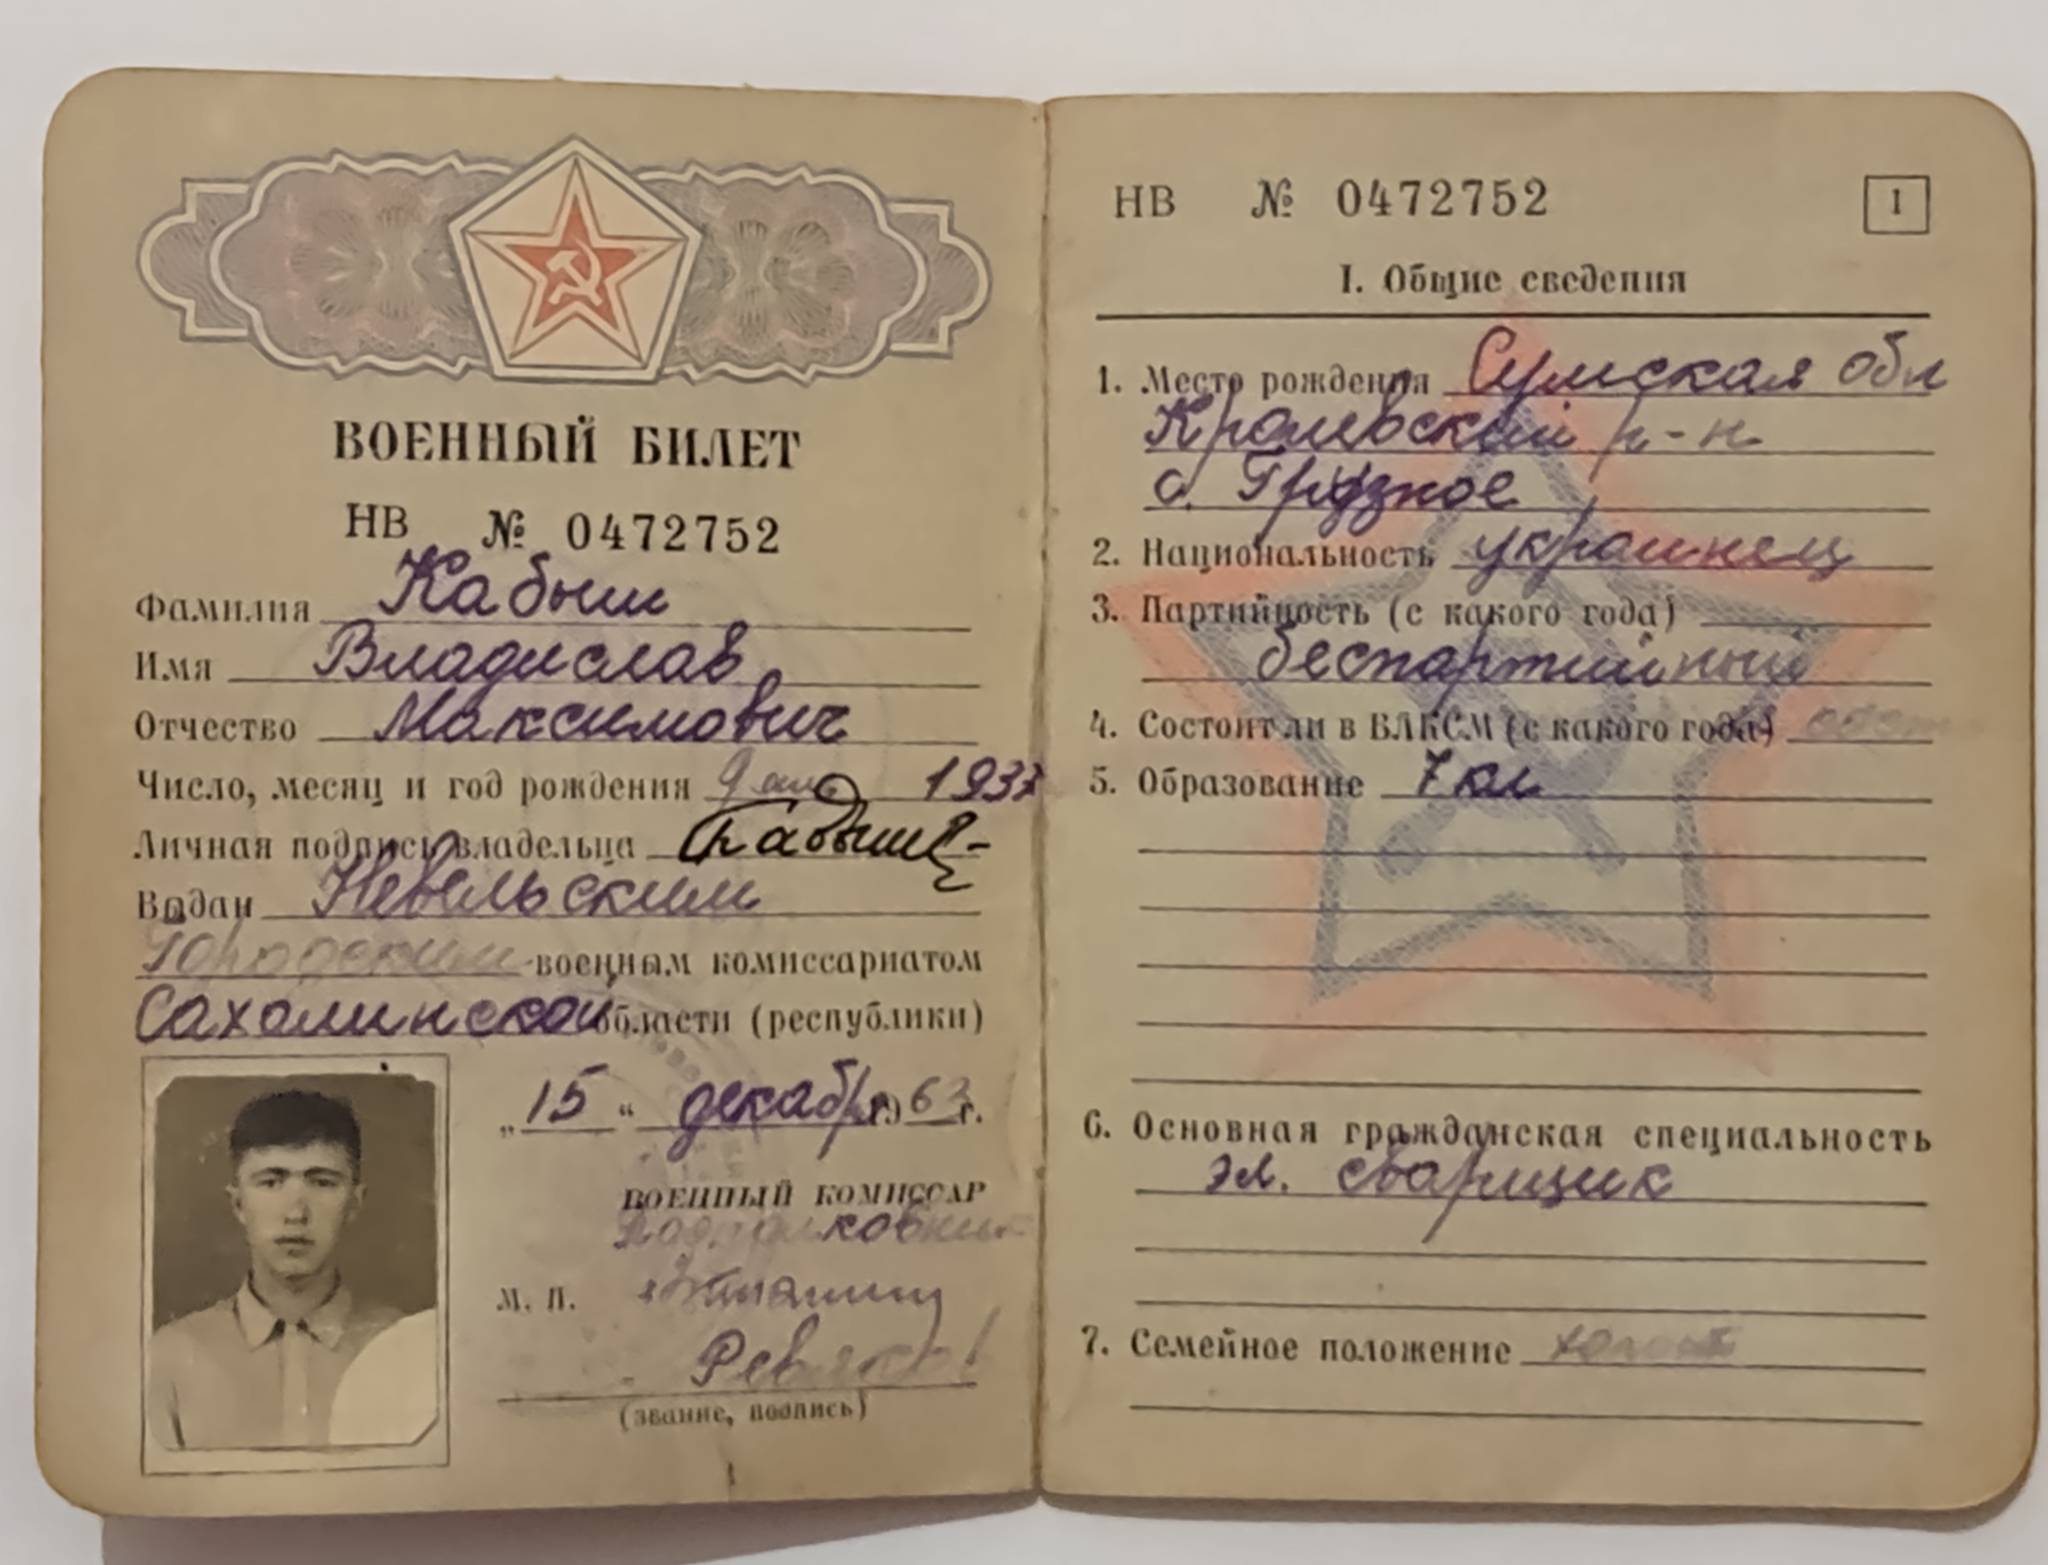 ВОЕННЫЙ БИЛЕТ
НВ № 0472752
Фамилия Кабыш
Имя Владислав
Отчество Максимович
Число, месяц и год рождения 9 1937
Личная подпись владельца Кабыш
Выдан Невельским
Городским военным комиссариатом
Сахалинской области (республики)
„15“ декабря 1963 г.
ВОЕННЫЙ КОМИССАР
Подполковник
М. П.
Ревяков
(звание, подпись)
НВ № 0472752
1
I. Общие сведения
1. Место рождения Сумская обл
Кролевский р-н
с. Грузное
2. Национальность украинец
3. Партийность (с какого года)
беспартийный
4. Состоит ли в ВЛКСМ (с какого года)
5. Образование 7 кл
6. Основная гражданская специальность
эл. сварщик
7. Семейное положение холост